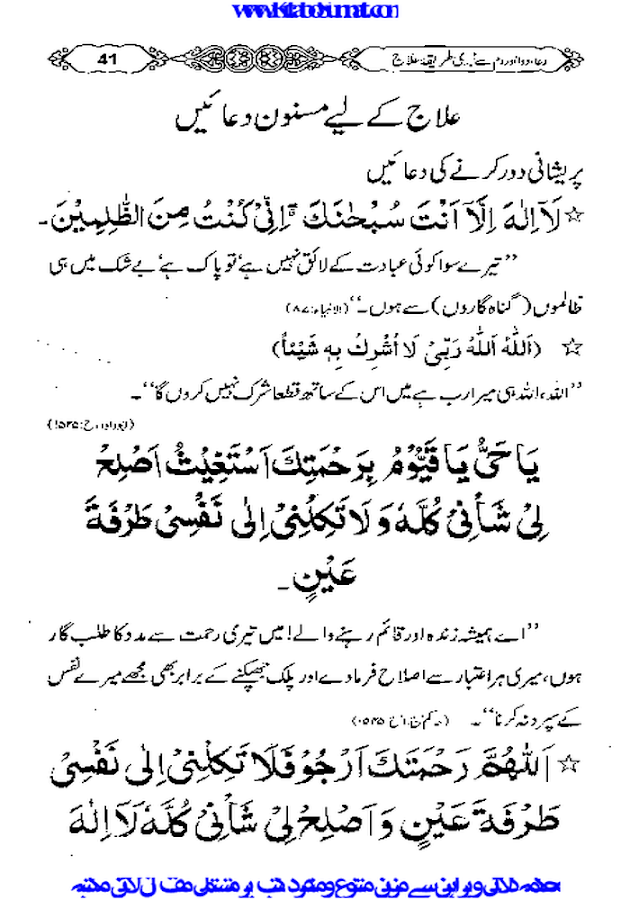 www.KitaboSunnat.com
41
دعا، دوا اور دم سے نبوی طریقہ علاج
علاج کے لیے مسنون دعائیں
پریشانی دور کرنے کی دعائیں
☆ لَآ اِلٰهَ اِلَّآ اَنْتَ سُبْحٰنَكَ ۗ اِنِّىْ كُنْتُ مِنَ الظّٰلِمِيْنَ۔
’’تیرے سوا کوئی عبادت کے لائق نہیں ہے‘ تو پاک ہے‘ بے شک میں ہی
ظالموں (گناہ گاروں) سے ہوں۔‘‘ (الانبیاء: ۸۷)
☆ (اَللّٰهُ اَللّٰهُ رَبِّىْ لَا اُشْرِكُ بِهٖ شَيْئاً)
’’اللہ، اللہ ہی میرا رب ہے میں اس کے ساتھ قطعا شرک نہیں کروں گا‘‘۔
(ابوداود، ح: ۱۵۲۵)
يَا حَىُّ يَا قَيُّوْمُ بِرَحْمَتِكَ اَسْتَغِيْثُ اَصْلِحْ
لِىْ شَأْنِىْ كُلَّهٗ وَلَا تَكِلْنِىْ اِلٰى نَفْسِىْ طَرْفَةَ
عَيْنٍ۔
’’اے ہمیشہ زندہ اور قائم رہنے والے! میں تیری رحمت سے مدد کا طلب گار
ہوں، میری ہر اعتبار سے اصلاح فرما دے اور پلک جھپکنے کے برابر بھی مجھے میرے نفس
کے سپرد نہ کرنا‘‘۔
☆ اَللّٰهُمَّ رَحْمَتَكَ اَرْجُوْ فَلَا تَكِلْنِىْ اِلٰى نَفْسِىْ
طَرْفَةَ عَيْنٍ وَاَصْلِحْ لِىْ شَأْنِىْ كُلَّهٗ لَآ اِلٰهَ
محکمہ دلائل و براہین سے مزین متنوع و منفرد کتب پر مشتمل مفت آن لائن مکتبہ